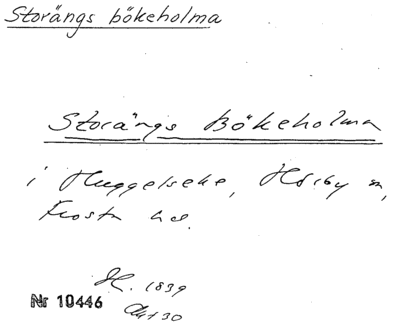 Storängs bökeholma
Storängs Bökeholma
i Huggelseke, Hörby sn,
Frosta hd.
H. 1839
Akt 30
Nr 10446